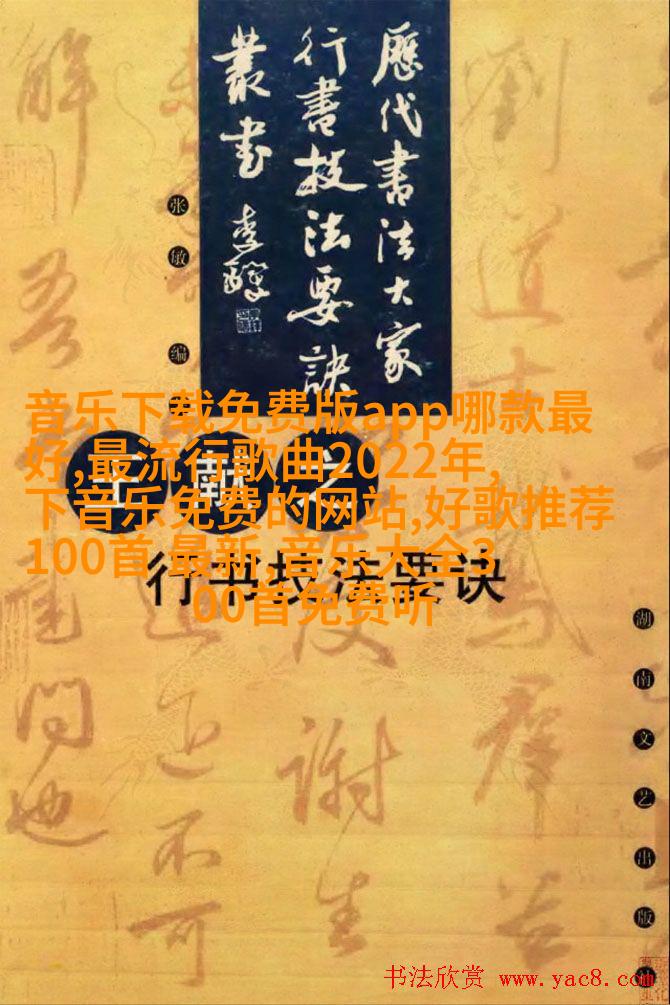 歷代書法大家
行書技法要訣
叢書 李鐸
张敏编
音乐下载免费版app哪款最
好,最流行歌曲2022年,
下音乐免费的网站,好歌推荐
100首 最新 音乐大全3
00首免费听
王献之
行书技法要诀
湖南文艺出版社
謝生
不可
問也
书法欣赏 www.yac8.com